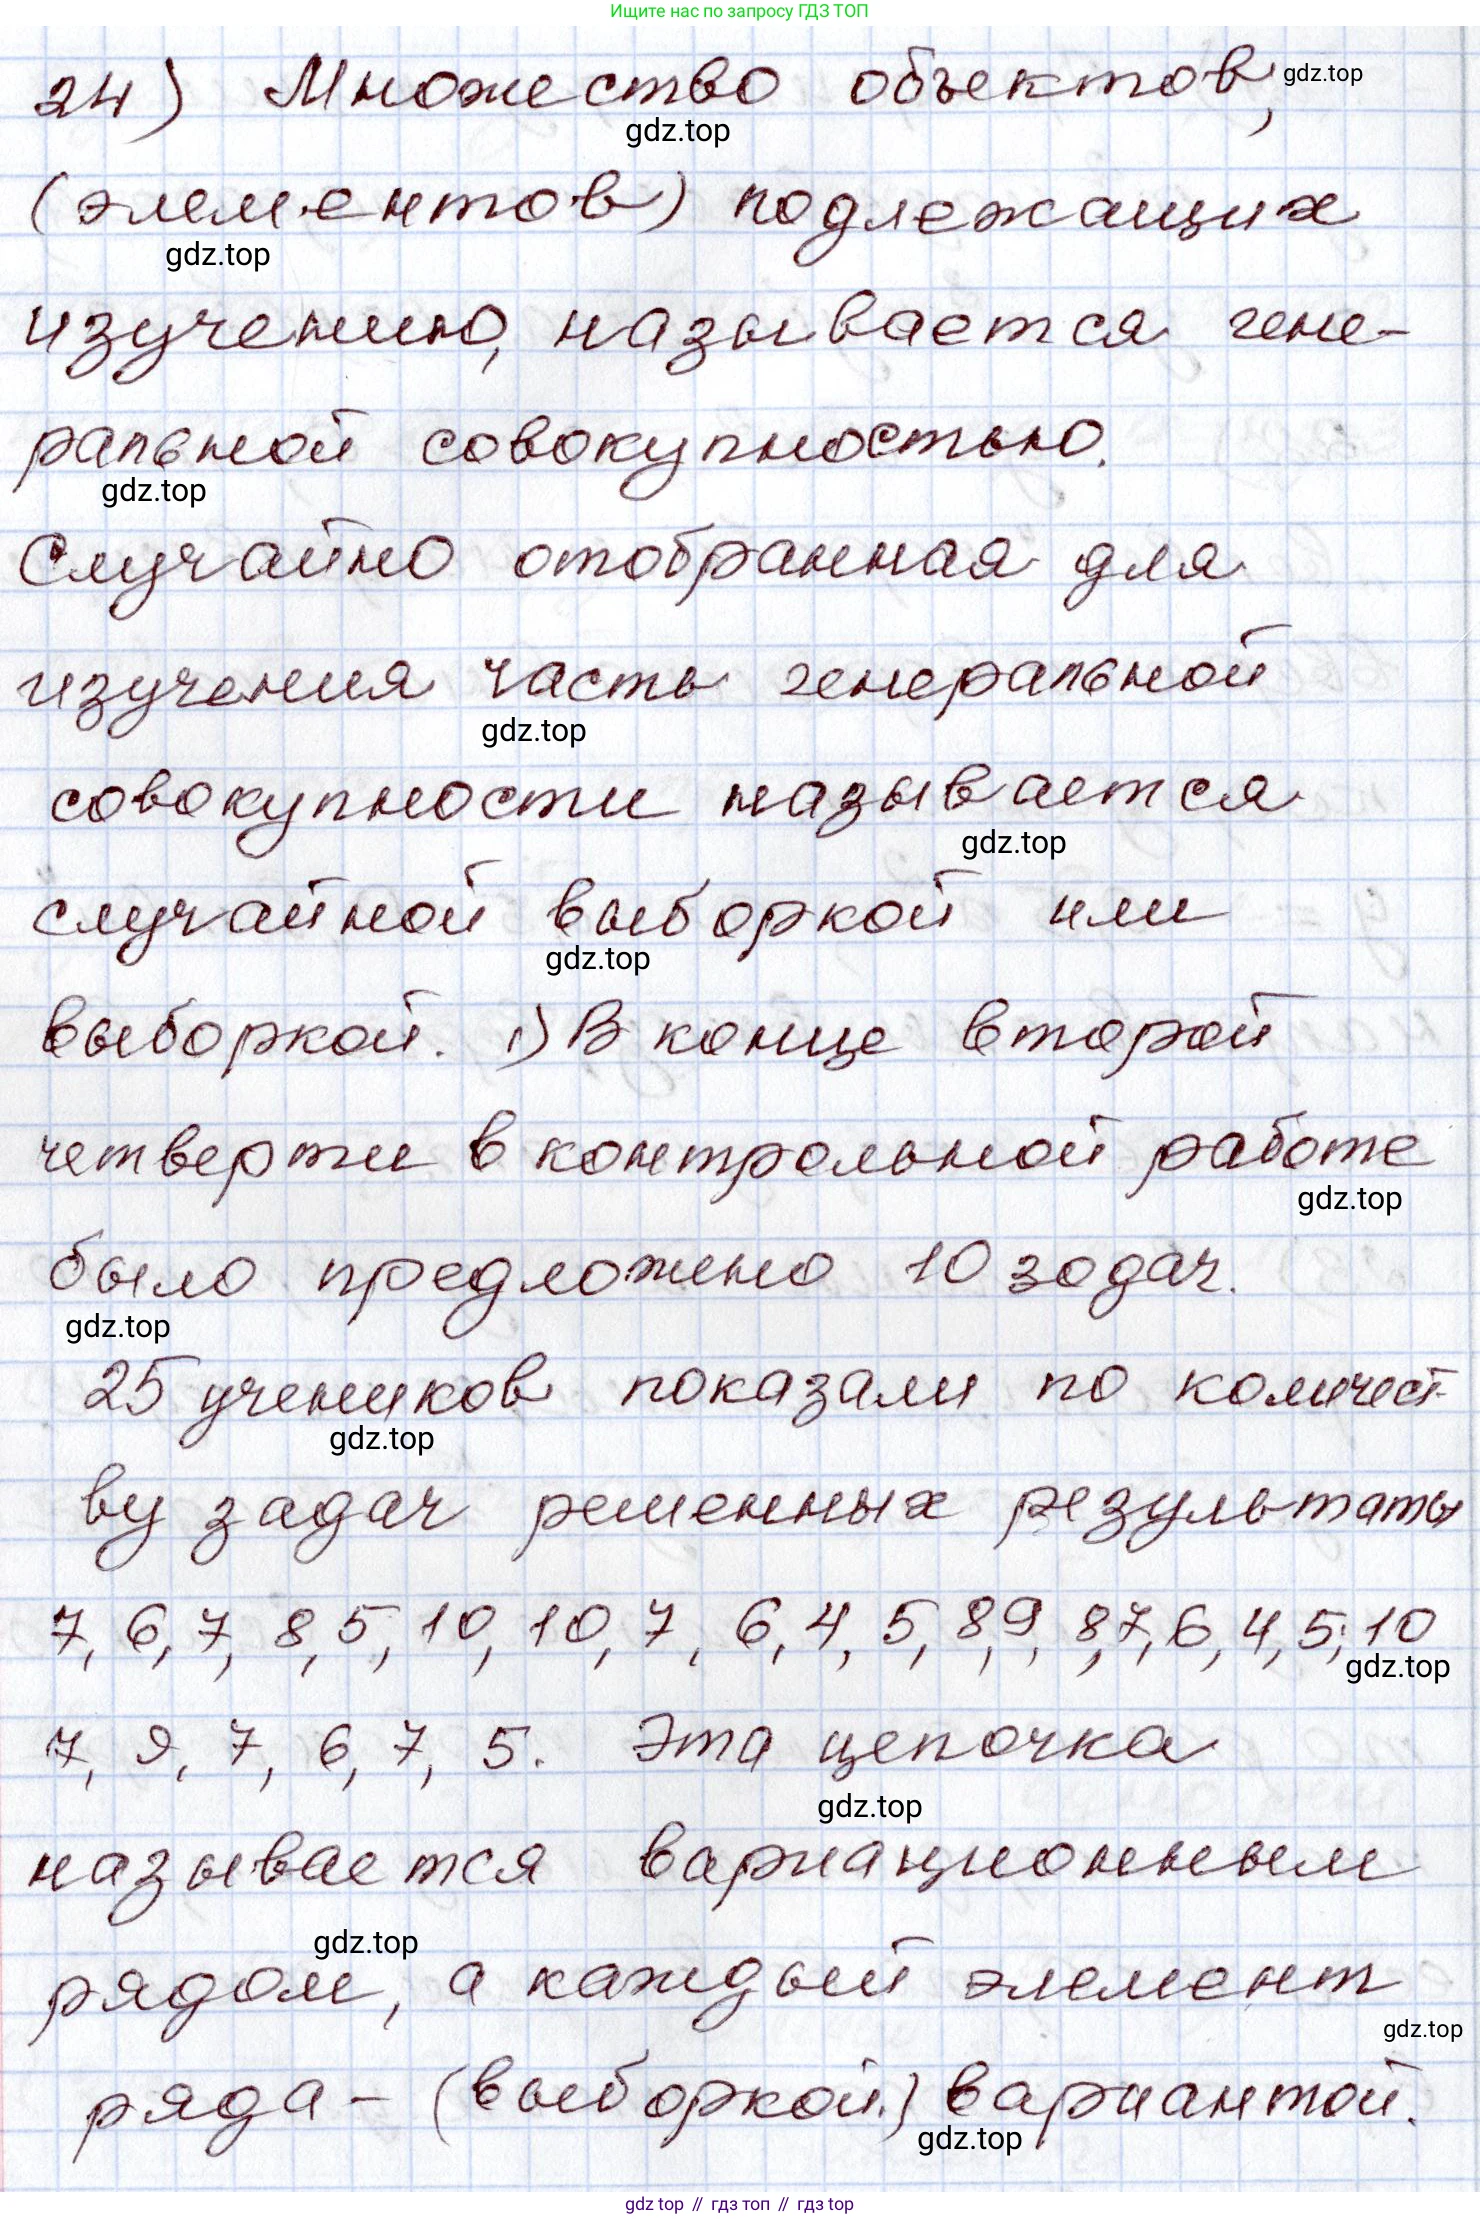 Ищите нас по запросу ГДЗ ТОП
24) Множество объектов, gdz.top
gdz.top
(элементов) подлежащих
gdz.top
изучению, называется гене-
ральной совокупностью.
gdz.top
Случайно отобранная для
изучения часть генеральной
gdz.top
совокупности называется
gdz.top
случайной выборкой или
gdz.top
выборкой. 1) В конце второй
четверти в контрольной работе
gdz.top
было предложено 10 зодач.
gdz.top
25 учеников показали по количест-
gdz.top
ву задач решенных результаты
7, 6, 7, 8, 5, 10, 10, 7, 6, 4, 5, 8, 9, 8, 7, 6, 4, 5, 10
gdz.top
7, 9, 7, 6, 7, 5. Эта цепочка
gdz.top
называется вариационным
gdz.top
рядом, а каждый элемент
gdz.top
ряда - (выборкой) вариантой.
gdz.top
gdz top // гдз топ // gdz top